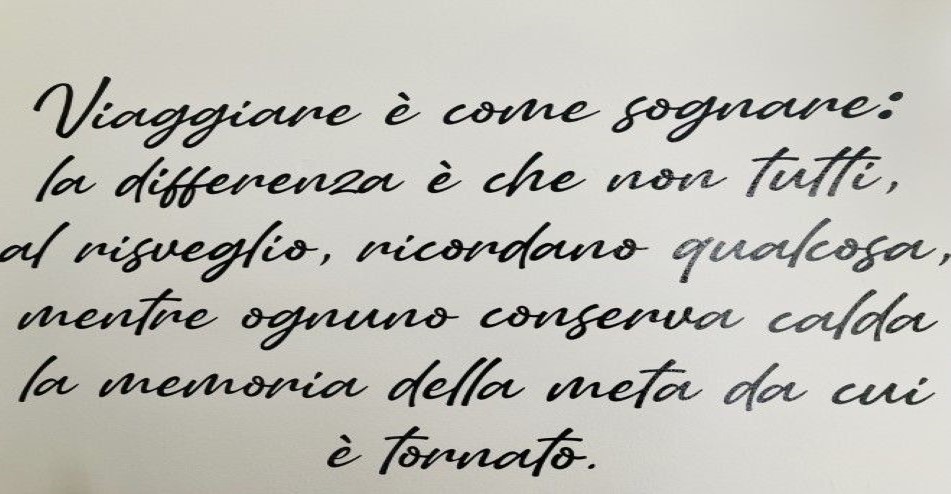 Viaggiare è come sognare:
la differenza è che non tutti,
al risveglio, ricordano qualcosa,
mentre ognuno conserva calda
la memoria della meta da cui
è tornato.